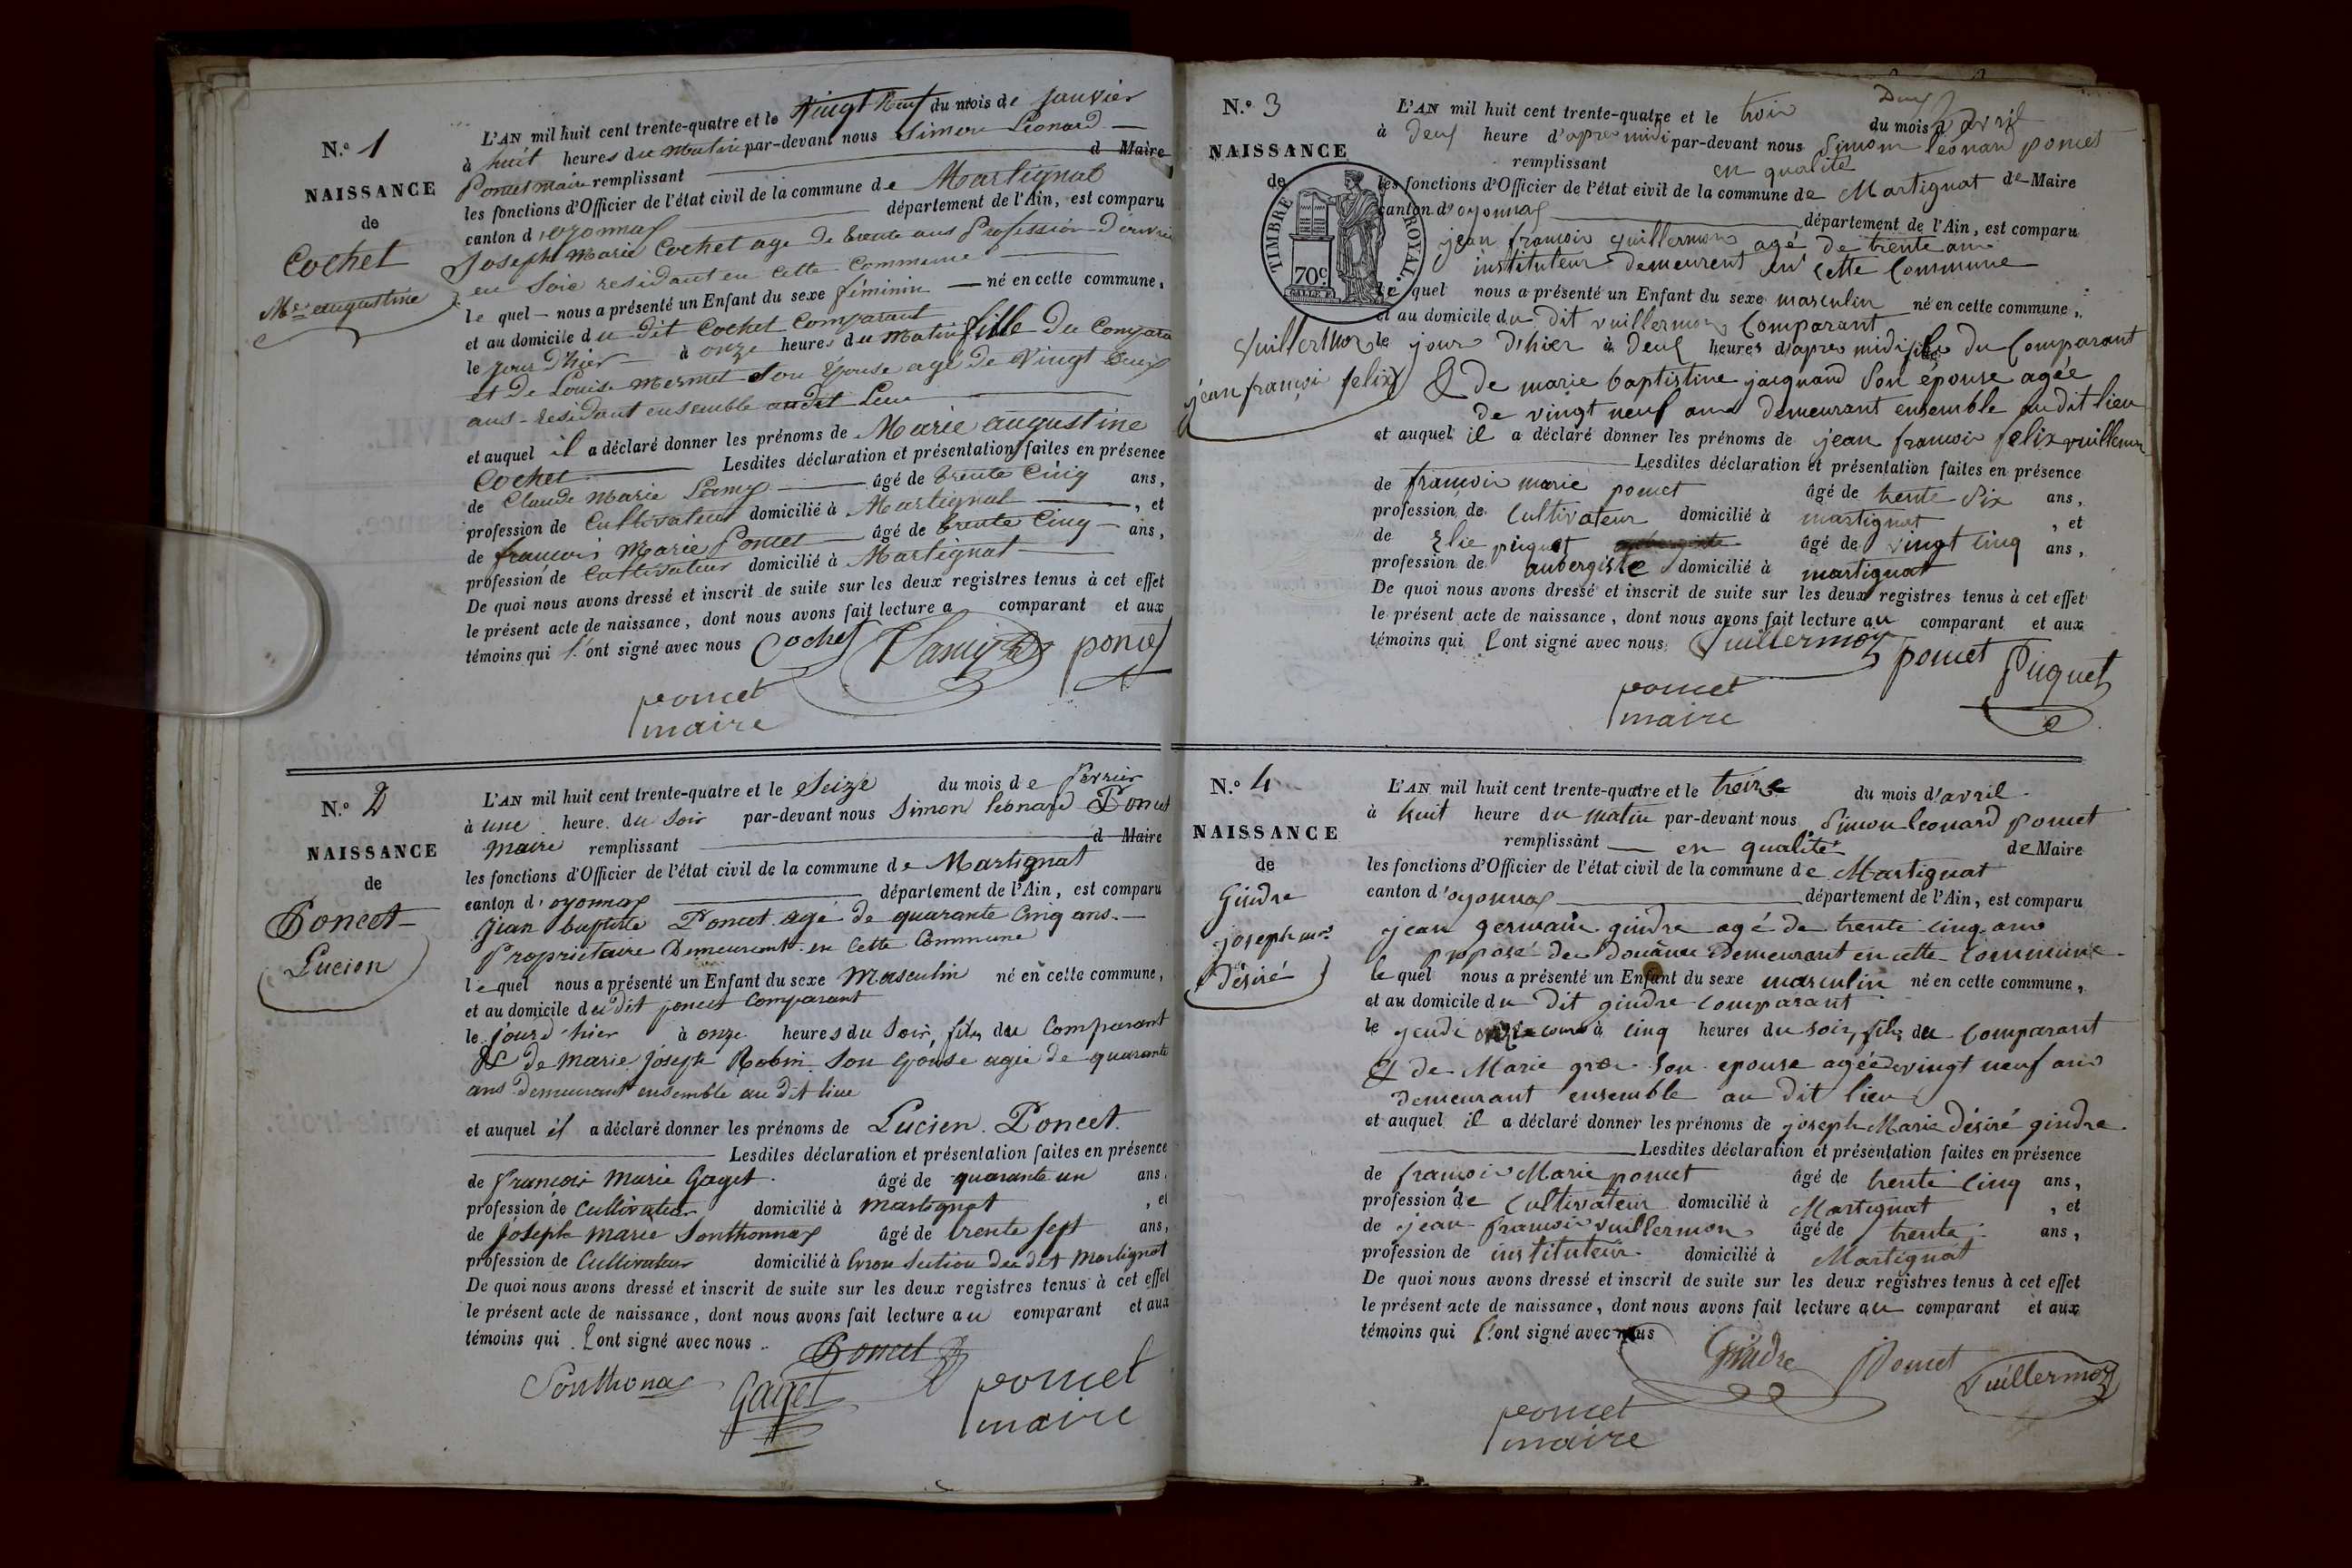 N.º 1
NAISSANCE
de
Cochet
Mie augustine
L'AN mil huit cent trente-quatre et le vingt neuf du mois de janvier
à huit heures du matin par-devant nous Simon Léonard
Poncet maire remplissant d Maire
les fonctions d'Officier de l'état civil de la commune de Martignat
canton d'oyonnax département de l'Ain, est comparu
Joseph Marie Cochet age de trente ans Profession D'ouvrier
en Soie residant en cette Commune
le quel nous a présenté un Enfant du sexe féminin né en cette commune,
et au domicile du dit Cochet Comparant
le jour D'hier à onze heures du matin fille Du Compara
et De Louise Mermet Son Épouse agé De Vingt Deux
ans residant ensemble au dit Lieu
et auquel il a déclaré donner les prénoms de Marie augustine
Cochet Lesdites déclaration et présentation faites en présence
de Claude Marie Lamy âgé de trente Cinq ans,
profession de Cultivateur domicilié à Martignat, et
de françois Marie Poncet âgé de trente Cinq ans,
profession de Cultivateur domicilié à Martignat
De quoi nous avons dressé et inscrit de suite sur les deux registres tenus à cet effet
le présent acte de naissance, dont nous avons fait lecture a comparant et aux
témoins qui l'ont signé avec nous Cochet Lamy poncet
poncet
maire
N.º 2
NAISSANCE
de
Poncet
Lucien
L'AN mil huit cent trente-quatre et le Seize du mois de fevrier
à une heure du Soir par-devant nous Simon léonard Poncet
maire remplissant d Maire
les fonctions d'Officier de l'état civil de la commune de Martignat
canton d'oyonnax département de l'Ain, est comparu
jean baptiste Poncet agé de quarante cinq ans.
Proprietaire Demeurant en cette Commune
le quel nous a présenté un Enfant du sexe Masculin né en cette commune,
et au domicile du dit poncet Comparant
le jour d'hier à onze heures du Soir, fils du Comparant
& de Marie Joseph Robin Son épouse agée de quarante
ans demeurant ensemble au dit lieu
et auquel il a déclaré donner les prénoms de Lucien Poncet.
Lesdites déclaration et présentation faites en présence
de françois Marie Gaget âgé de quarante un ans,
profession de Cultivateur domicilié à Martignat, et
de Joseph Marie Sonthonnax âgé de trente sept ans,
profession de Cultivateur domicilié à Section du dit Martignat
De quoi nous avons dressé et inscrit de suite sur les deux registres tenus à cet effet
le présent acte de naissance, dont nous avons fait lecture au comparant et aux
témoins qui l'ont signé avec nous Poncet
Sonthonax Gaget poncet
maire
N.º 3
NAISSANCE
de
TIMBRE ROYAL.
70c
Vuillermoz
jean françoi felix
L'AN mil huit cent trente-quatre et le trois du mois d'avril
à deux heure d'apres midi par-devant nous Simon léonard poncet
remplissant en qualité de Maire
les fonctions d'Officier de l'état civil de la commune de Martignat
canton d'oyonnax département de l'Ain, est comparu
jean françois vuillermoz agé de trente ans
instituteur demeurent en cette Commune
le quel nous a présenté un Enfant du sexe masculin né en cette commune,
et au domicile du dit vuillermoz Comparant
le jour d'hier à deux heures d'apres midi fils du Comparant
& de marie baptistine jacquand Son épouse agée
de vingt neuf ans demeurant ensemble au dit lieu
et auquel il a déclaré donner les prénoms de jean françois felix vuillermoz
Lesdites déclaration et présentation faites en présence
de françois marie poncet âgé de trente Six ans,
profession de Cultivateur domicilié à martignat, et
de Elie puquet âgé de vingt cinq ans,
profession de aubergiste domicilié à martignat
De quoi nous avons dressé et inscrit de suite sur les deux registres tenus à cet effet
le présent acte de naissance, dont nous avons fait lecture au comparant et aux
témoins qui l'ont signé avec nous Vuillermoz poncet Puquet
poncet
maire
N.º 4
NAISSANCE
de
Gindre
joseph mie
Désiré
L'AN mil huit cent trente-quatre et le treize du mois d'avril
à huit heure du matin par-devant nous Simon léonard poncet
remplissant en qualité de Maire
les fonctions d'Officier de l'état civil de la commune de Martignat
canton d'oyonnax département de l'Ain, est comparu
jean germain gindre agé de trente cinq ans
préposé des Douânes Demeurant en cette Commune
le quel nous a présenté un Enfant du sexe masculin né en cette commune,
et au domicile du Dit gindre comparant
le jeudi onze courant à cinq heures du soir, fils du comparant
& de Marie gros Son epouse agée de vingt neuf ans
demeurant ensemble au dit lieu
et auquel il a déclaré donner les prénoms de joseph Marie Désiré gindre.
Lesdites déclaration et présentation faites en présence
de françois Marie poncet âgé de trente cinq ans,
profession de Cultivateur domicilié à Martignat, et
de jean françois vuillermoz âgé de trente ans,
profession de instituteur domicilié à Martignat
De quoi nous avons dressé et inscrit de suite sur les deux registres tenus à cet effet
le présent acte de naissance, dont nous avons fait lecture au comparant et aux
témoins qui l'ont signé avec nous
Gindre Poncet Vuillermoz
poncet
maire